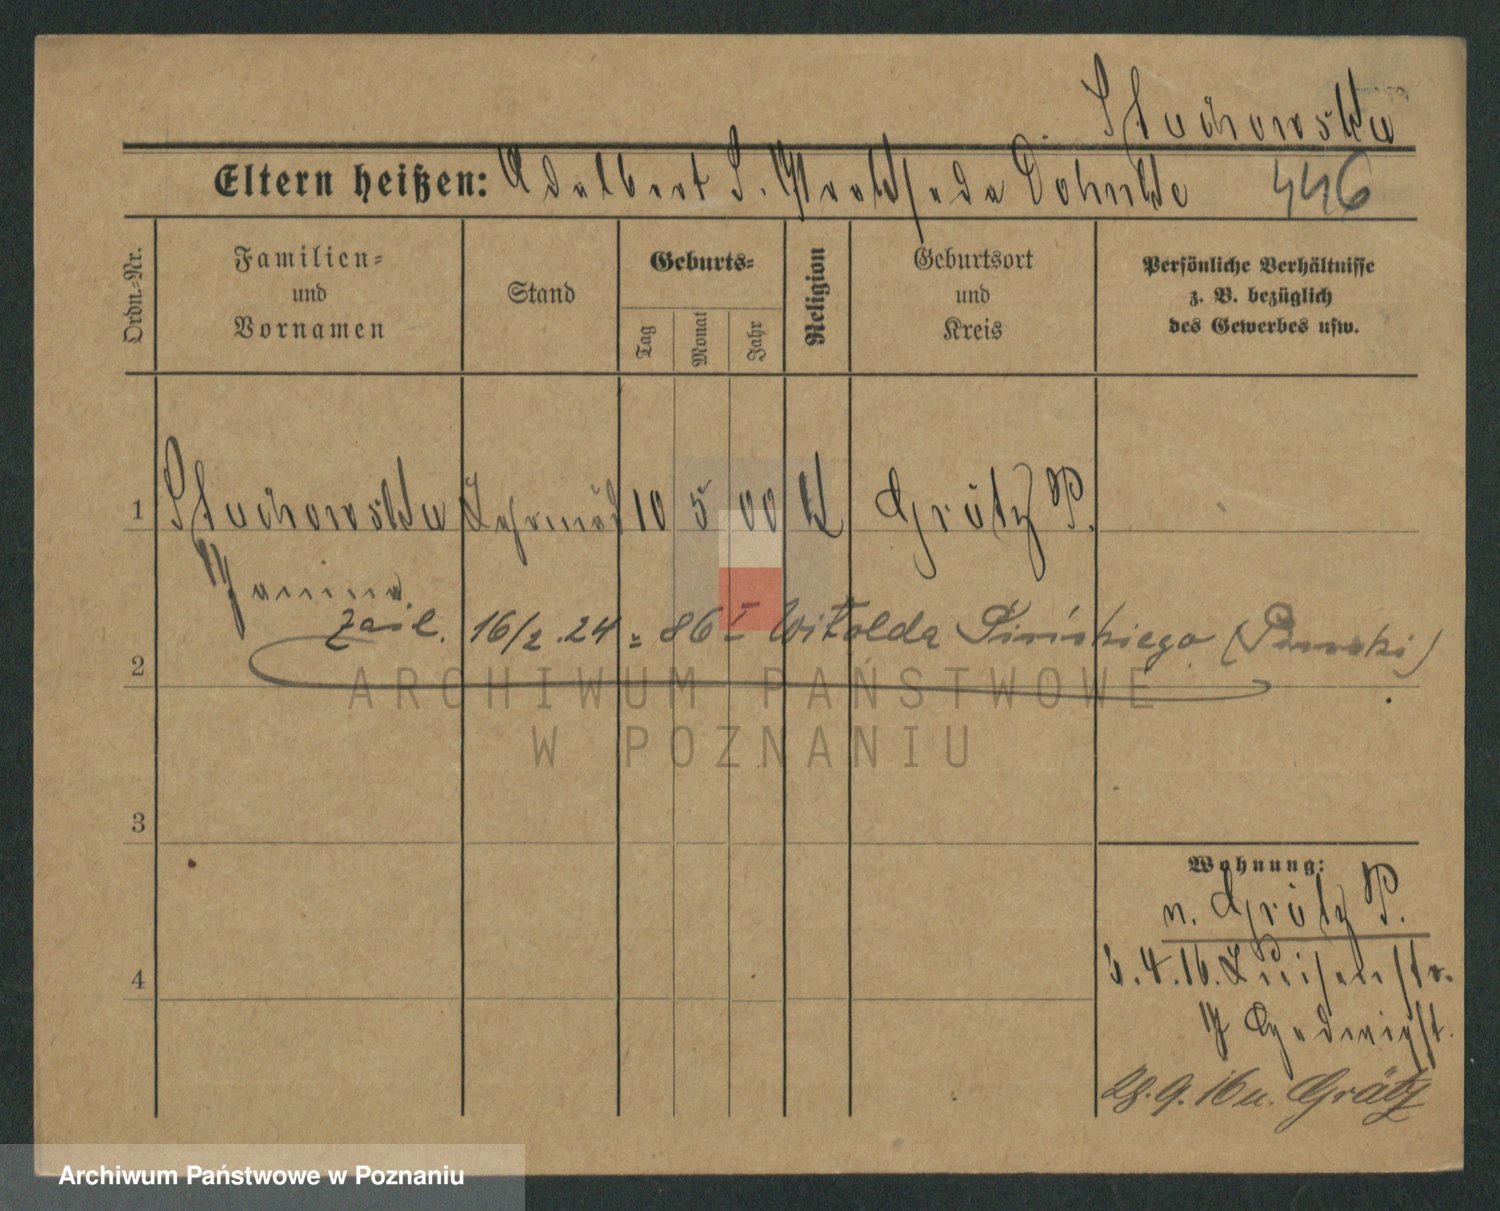 Stuchowska
Eltern heißen: Adalbert S. Dohnke 446
Ordn.-Nr.
Familien-
und
Vornamen
Stand
Geburts-
Tag
Monat
Jahr
Religion
Geburtsort
und
Kreis
Persönliche Verhältnisse
z. B. bezüglich
des Gewerbes usw.
1 Stuchowska 10 5 00 K Grätz P.
Janina
zaśl. 16/2.24 = 86 I Witolda
2
ARCHIWUM PAŃSTWOWE
W POZNANIU
3
Wohnung:
n. Grätz P.
3.4.16. Luisenstr.
4
28.9.16 n. Grätz
Archiwum Państwowe w Poznaniu